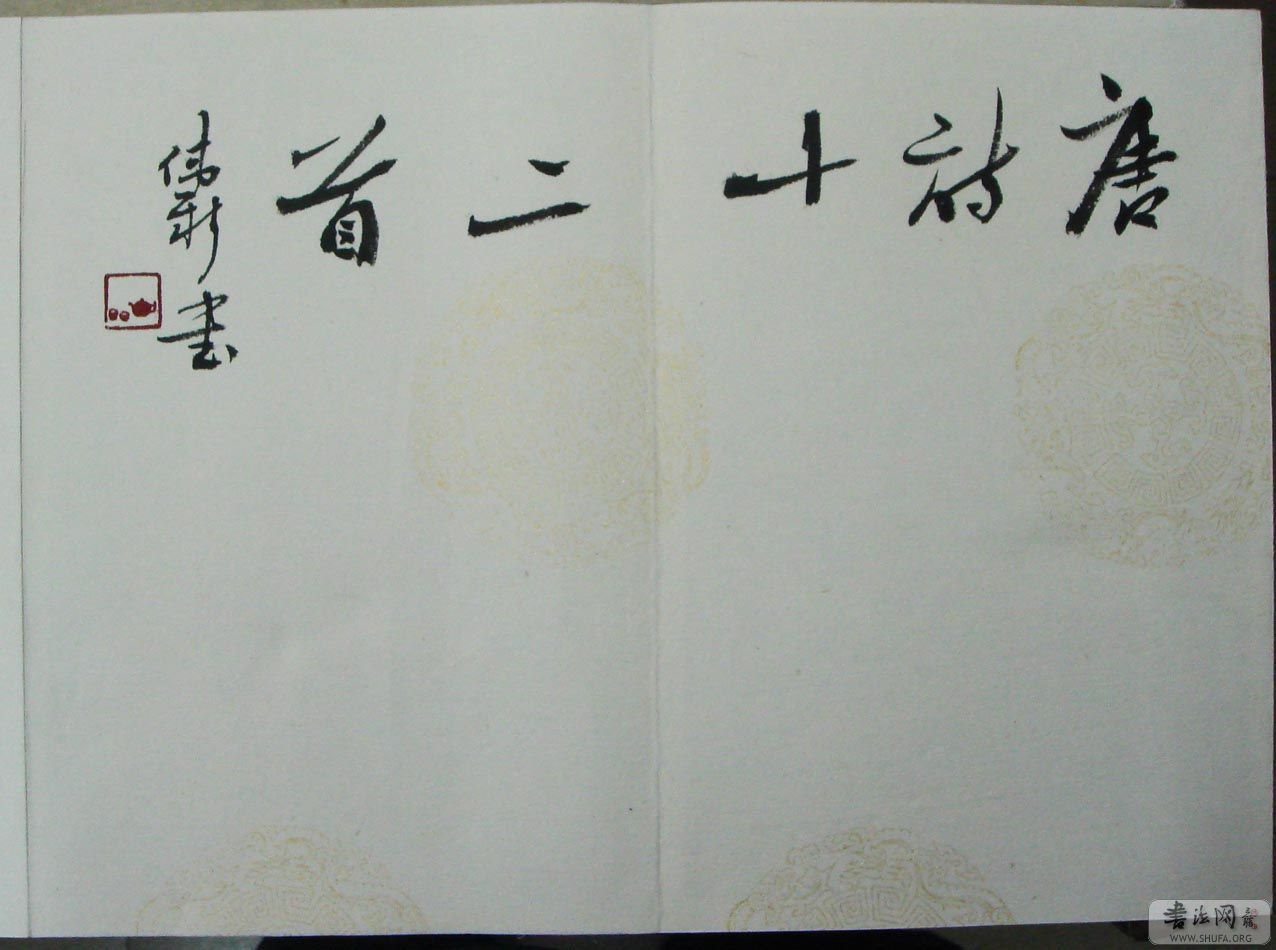 唐詩十二首
偉新書
書法网
WWW.SHUFA.ORG